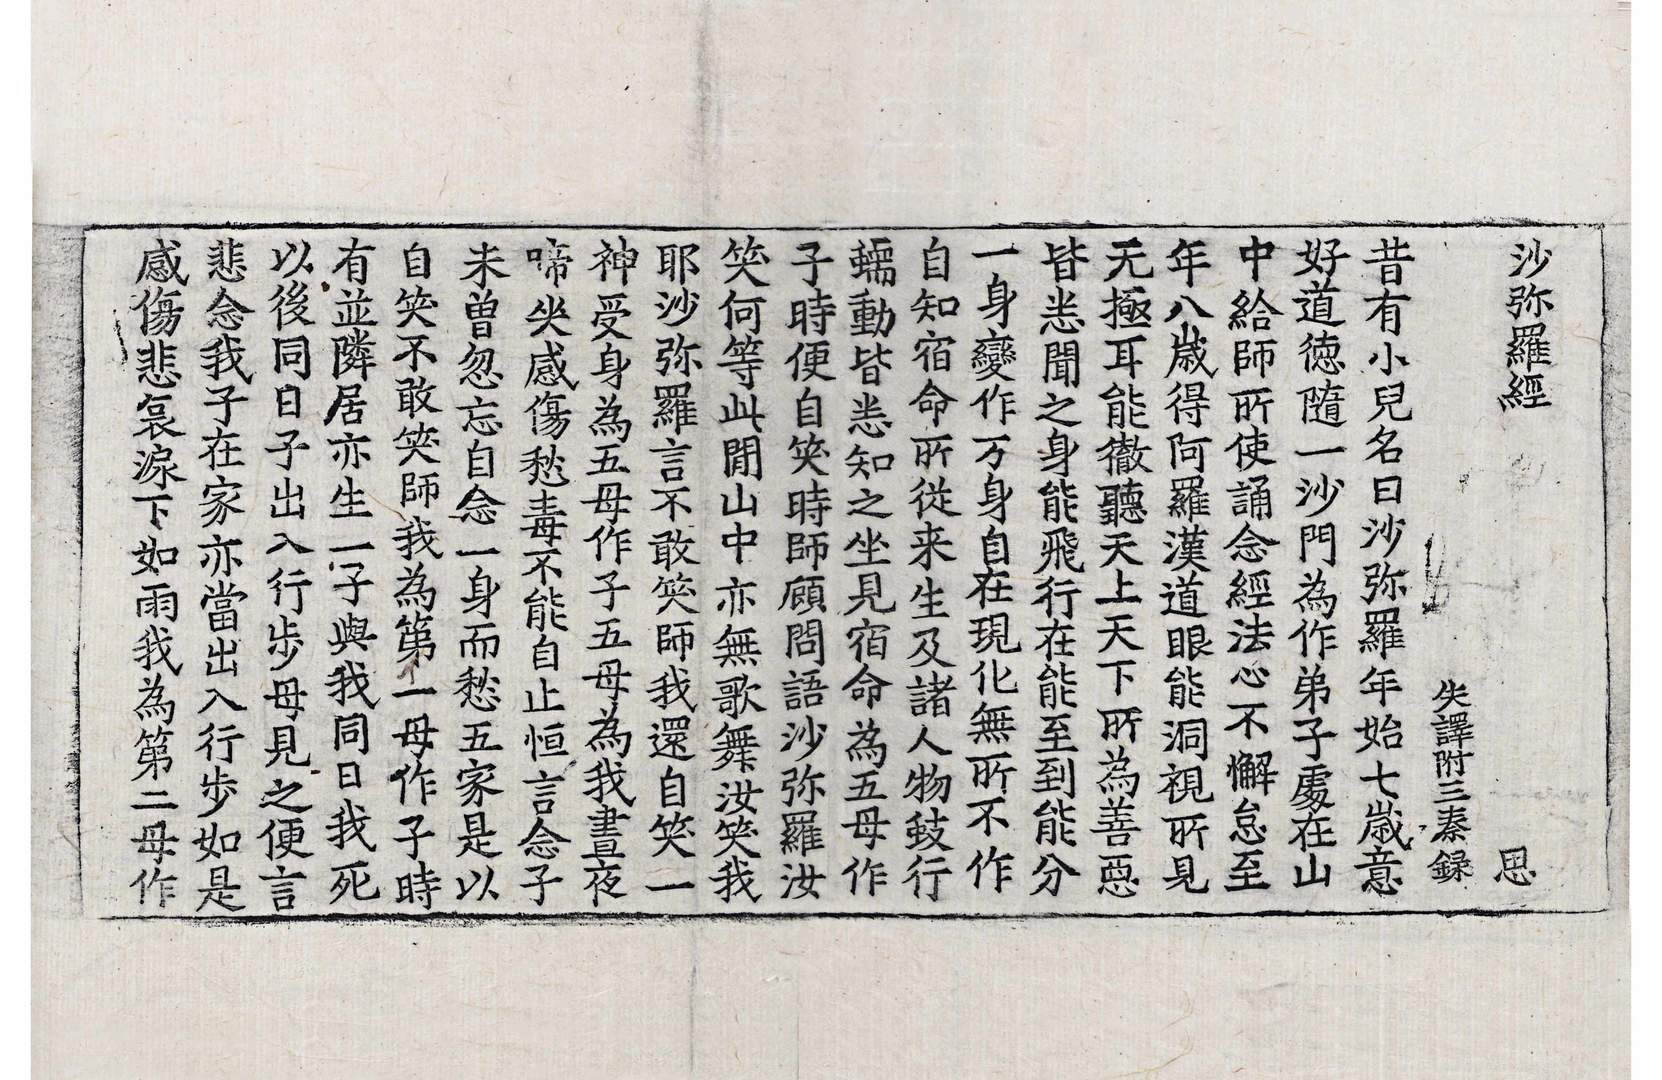 沙弥羅經 思
失譯附三秦錄
昔有小兒名曰沙弥羅年始七歲意
好道德隨一沙門為作弟子處在山
中給師所使誦念經法心不懈怠至
年八歲得阿羅漢道眼能洞視所見
无極耳能徹聽天上天下所為善惡
皆悉聞之身能飛行在能至到能分
一身變作万身自在現化無所不作
自知宿命所從来生及諸人物蚑行
蠕動皆悉知之坐見宿命為五母作
子時便自笑時師顧問語沙弥羅汝
笑何等此間山中亦無歌舞汝笑我
耶沙弥羅言不敢笑師我還自笑一
神受身為五母作子五母為我晝夜
啼哭感傷愁毒不能自止恒言念子
未曽忽忘自念一身而愁五家是以
自笑不敢笑師我為第一母作子時
有並隣居亦生一子與我同日我死
以後同日子出入行步母見之便言
悲念我子在家亦當出入行步如是
感傷悲哀淚下如雨我為第二母作